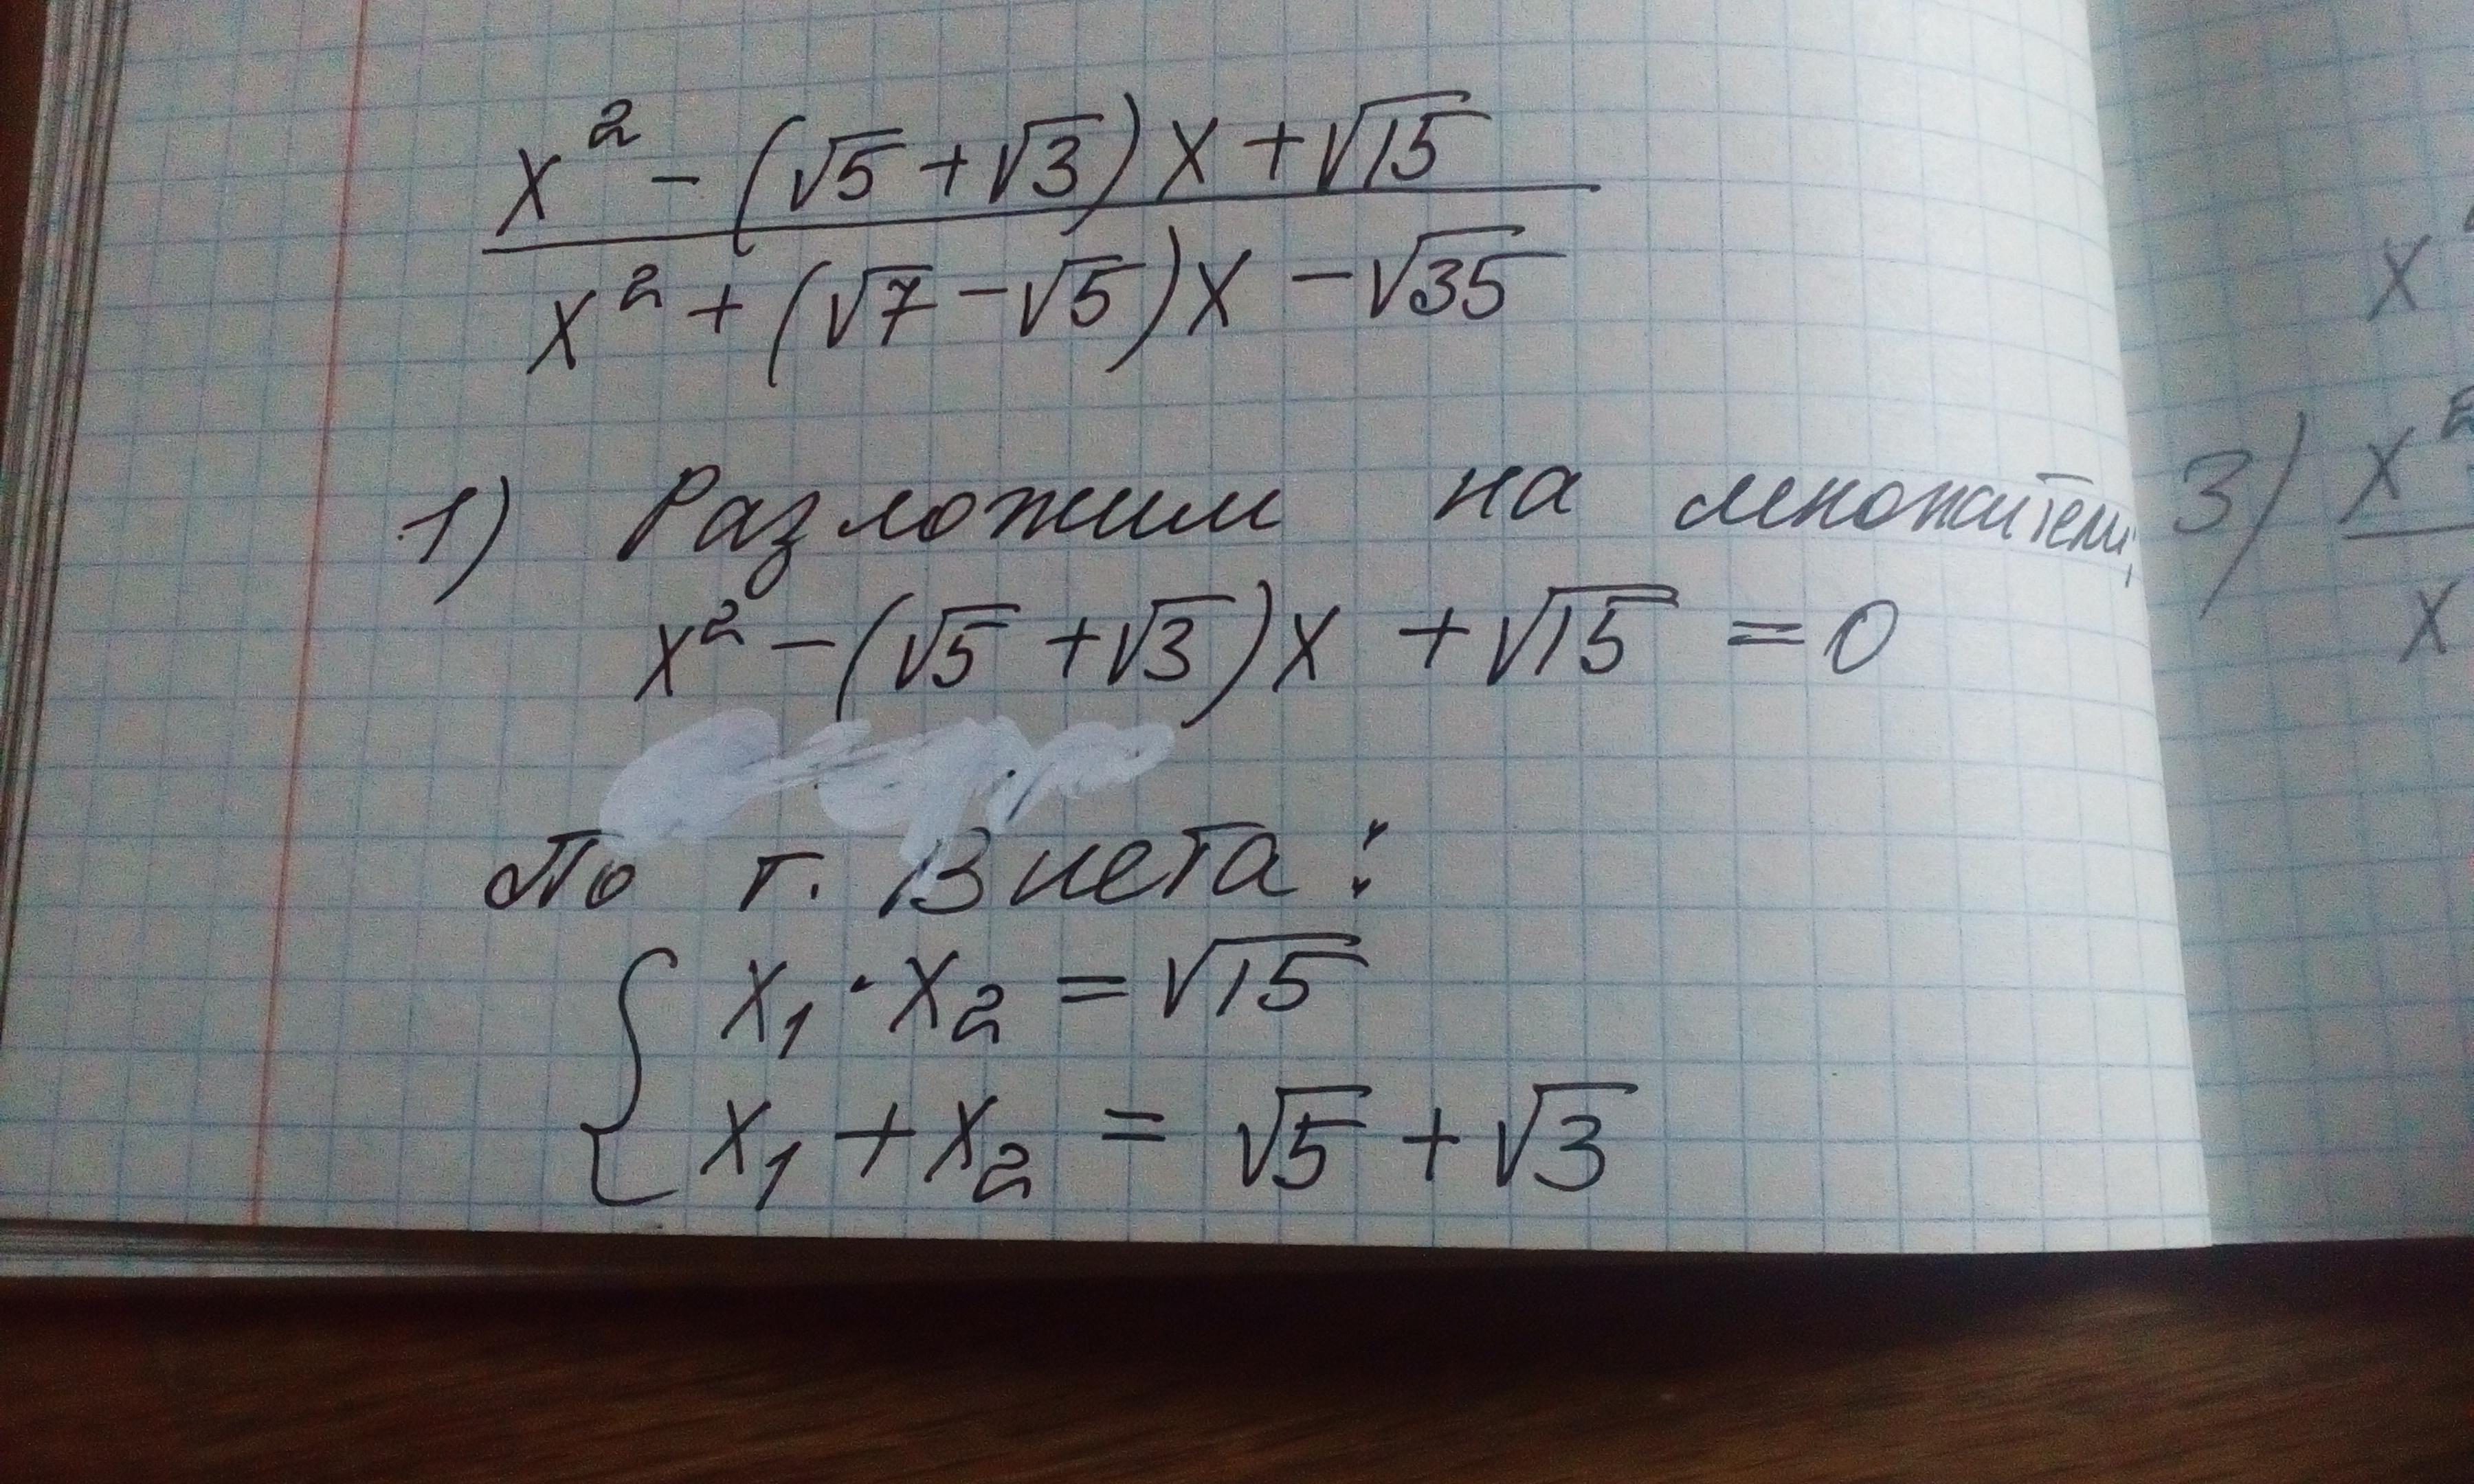 x² - (√5 + √3)x + √15
x² + (√7 - √5)x - √35
1) Разложим на множители,
x² - (√5 + √3)x + √15 = 0
По т. Виета:
x₁ · x₂ = √15
x₁ + x₂ = √5 + √3
x
3) x²
x